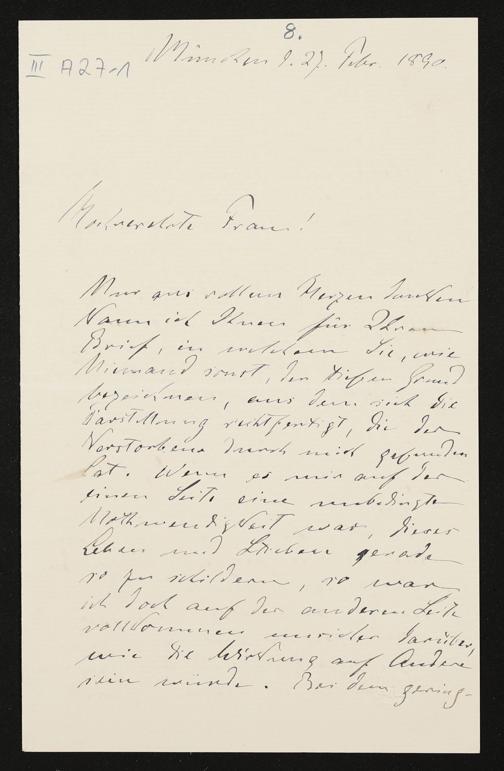 8.
III A27-1
München d. 27. Febr. 1890.
Hochverehrte Frau!
Nur aus vollem Herzen danken
kann ich Ihnen für Ihren
Brief, in welchem Sie, wie
Niemand sonst, den tiefen Grund
bezeichnen, aus dem sich die
Darstellung rechtfertigt, die der
Verstorbene durch mich gefunden
hat. Wenn es mir auf der
einen Seite eine unbedingte
Nothwendigkeit war, dieses
Leben und Streben gerade
so zu schildern, so war
ich doch auf der anderen Seite
vollkommen unsicher darüber,
wie die Wirkung auf Andere
sein würde. Bei dem gering-